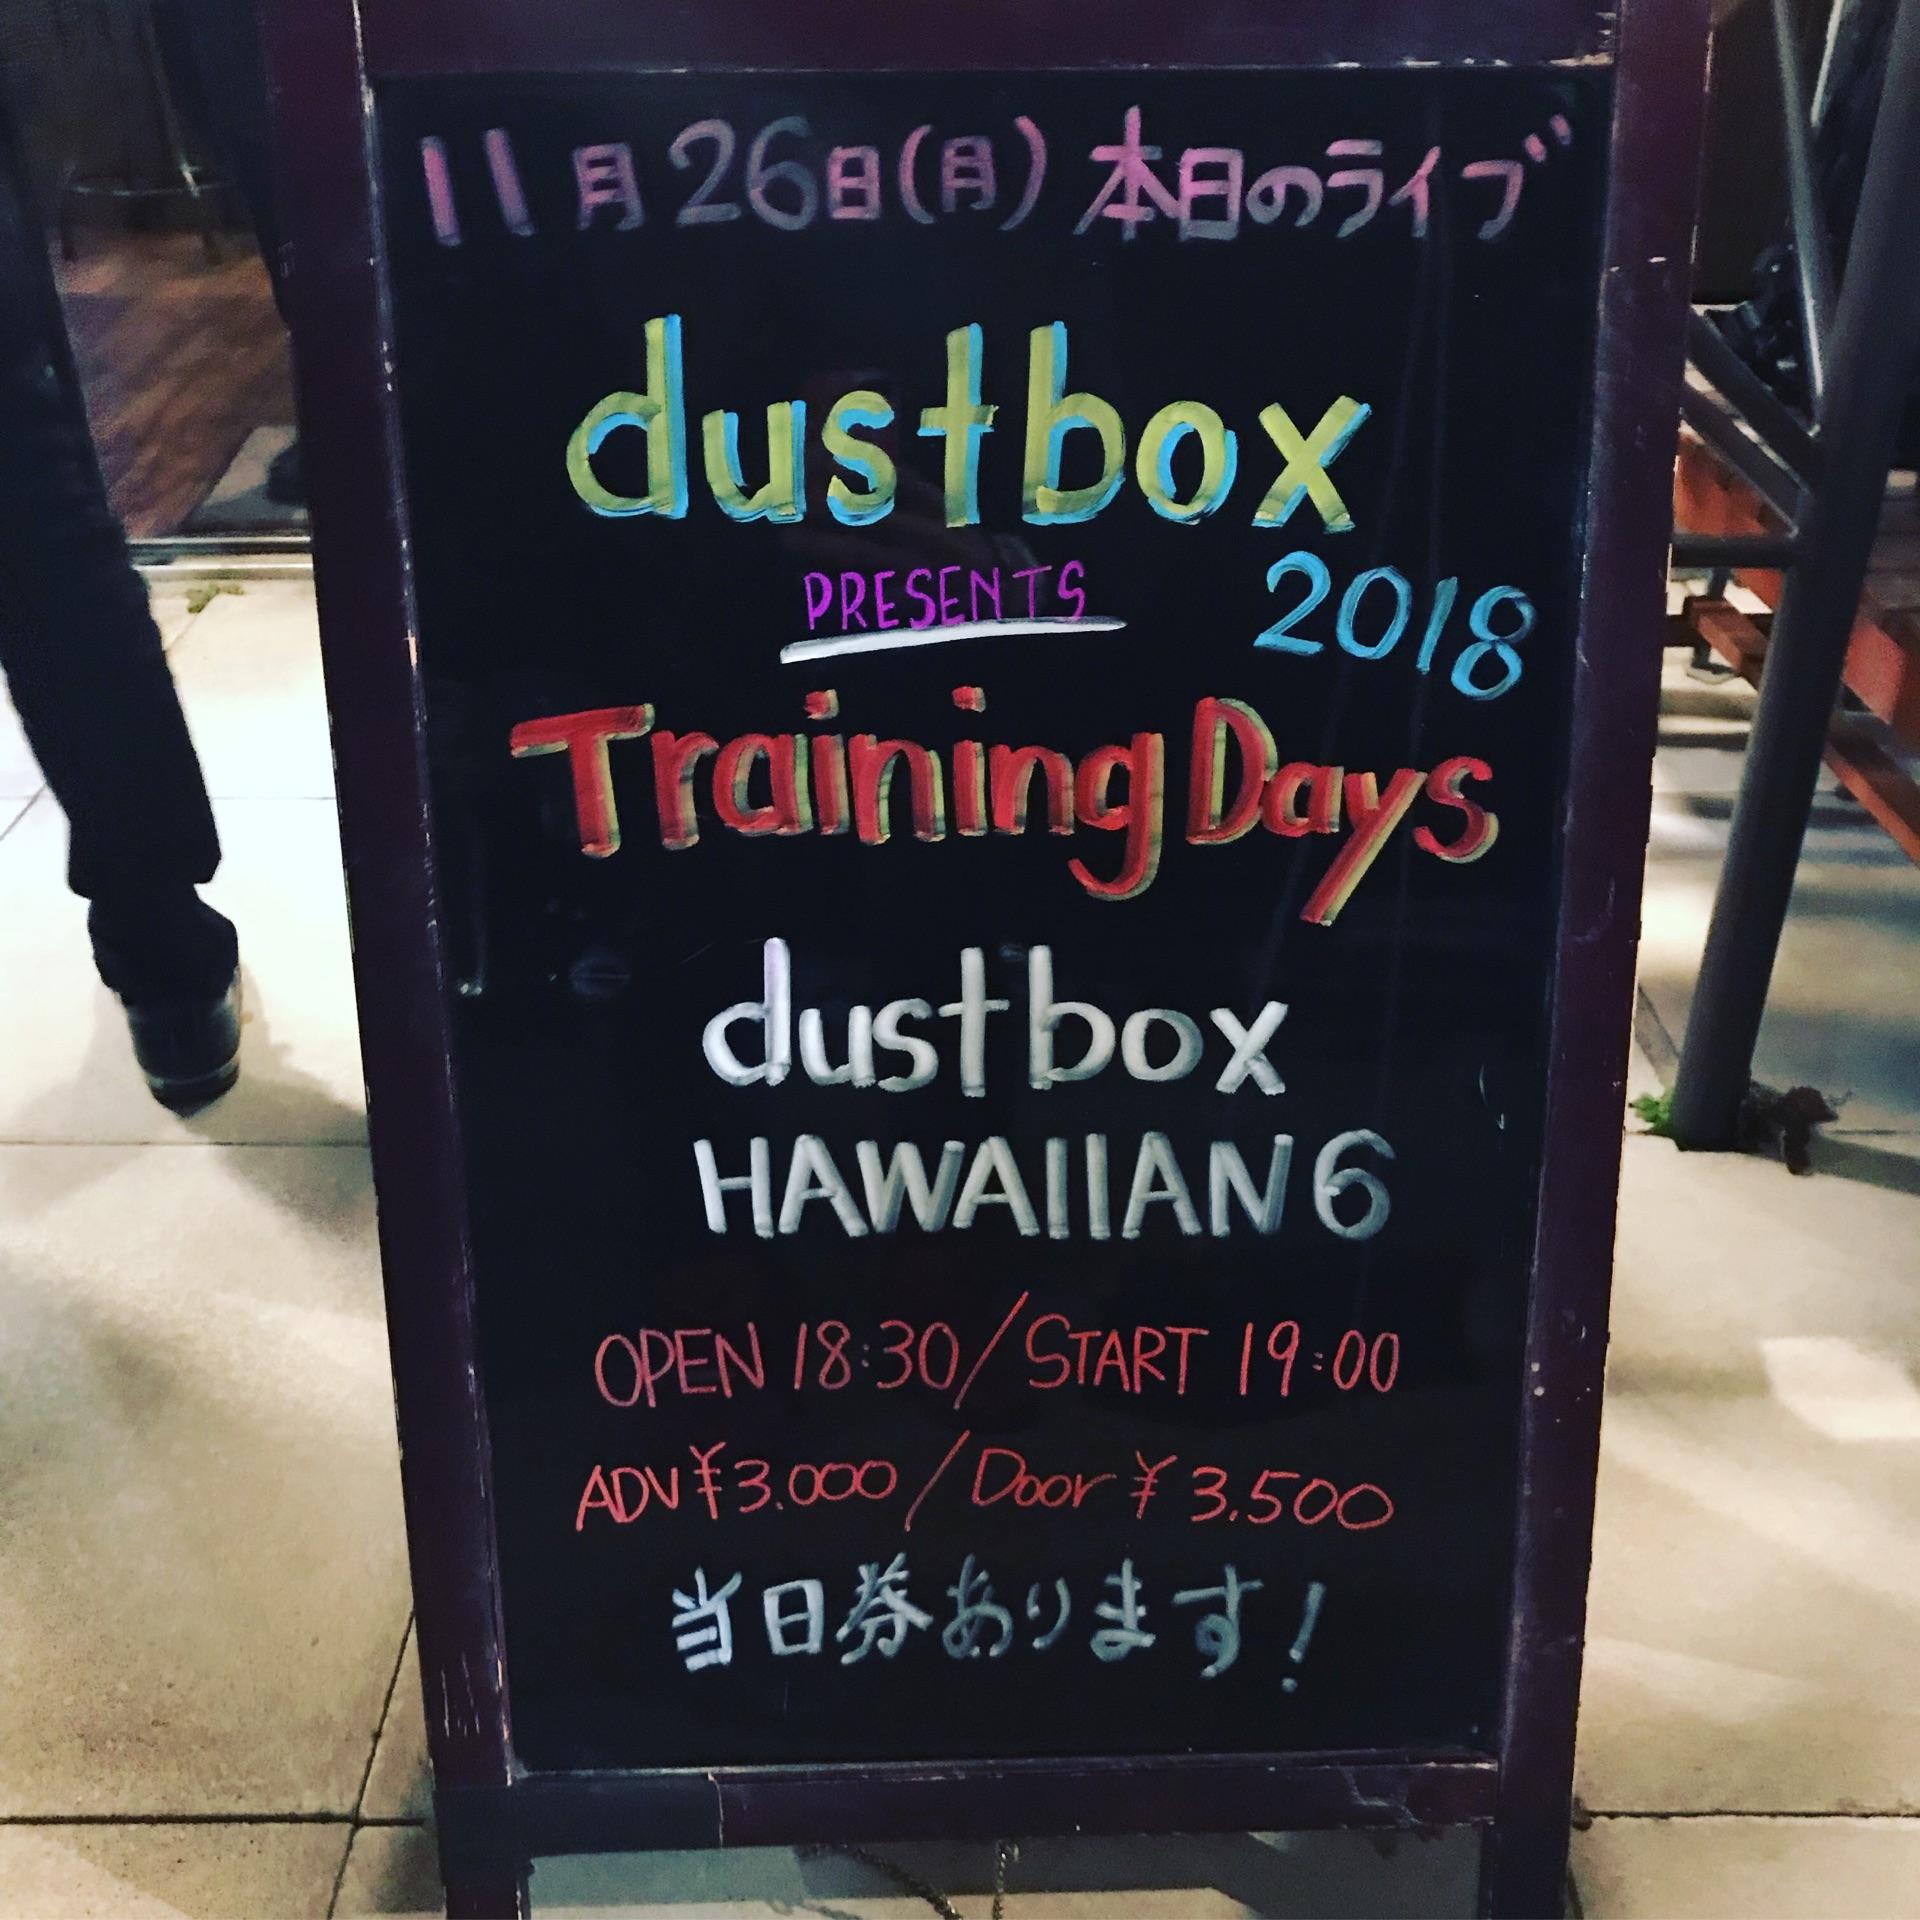 11月26日(月) 本日のライブ
dustbox
PRESENTS 2018
Training Days
dustbox
HAWAIIAN6
OPEN 18:30/START 19:00
ADV¥3.000/Door¥3.500
当日券あります!